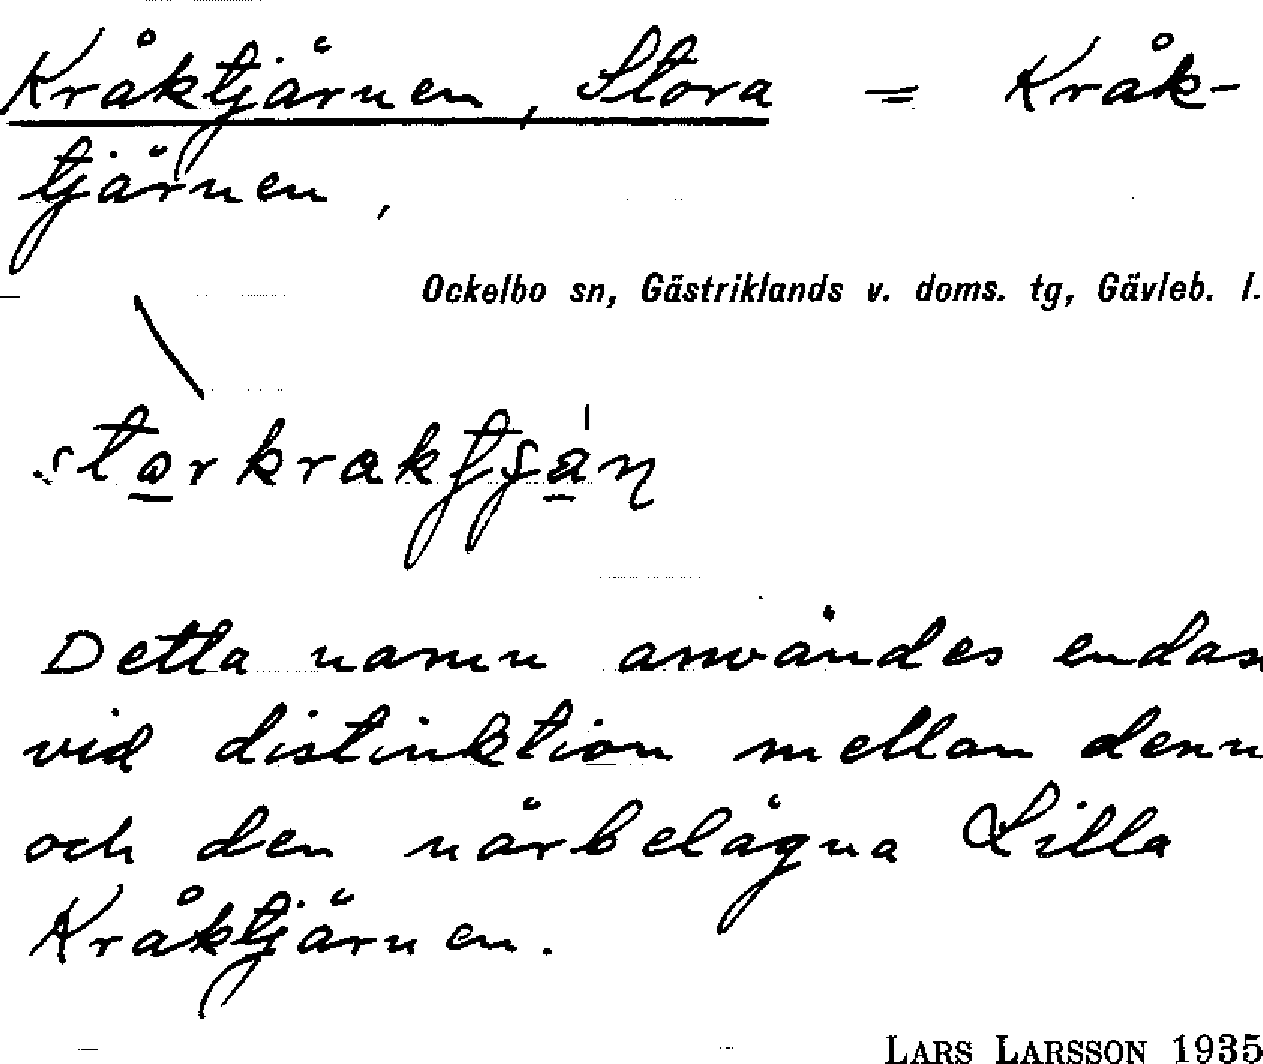 Kråktjärnen, Stora = Kråk-
tjärnen,
Ockelbo sn, Gästriklands v. doms. tg, Gävleb. l.
Detta namn användes endan
vid distinktion mellan denn
och den närbelägna Lilla
Kråktjärnen.
LARS LARSSON 1935